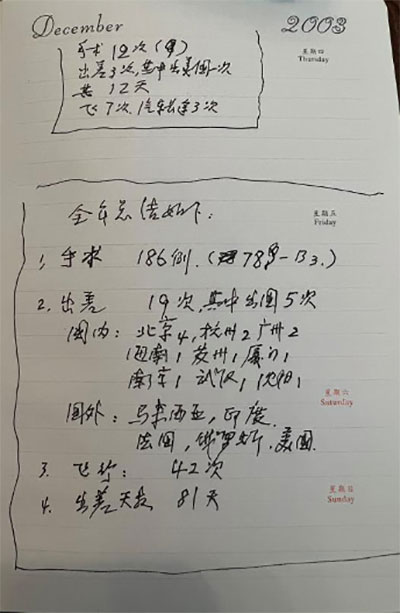 December 2003
手术 12次(
出差3次,其中出美国一次
共 12天
飞7次,汽车长途3次
星期四
Thursday
全年总结如下:
星期五
Friday
1, 手术 186例.(
2. 出差 19次,其中出国5次
国内: 北京4,杭州2广州2
海南1 苏州1 厦门1
南京1 武汉1 沈阳1
星期六
Saturday
国外: 马来西亚, 印度.
法国, 俄罗斯. 美国.
3. 飞行: 42次
4. 出差天数 81天
星期日
Sunday